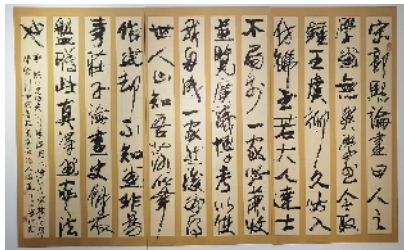 宋郭熙論畫曰人之
學畫無異學書今取
鍾王虞柳久必入
仿佛至若大人達士
不局於一家必兼收
並覽廣議博考以使
我自成一家然後為得
世人止知吾落筆
作畫却不知畫非易
事莊子論畫史解衣
盤礴此真得畫家之法
也